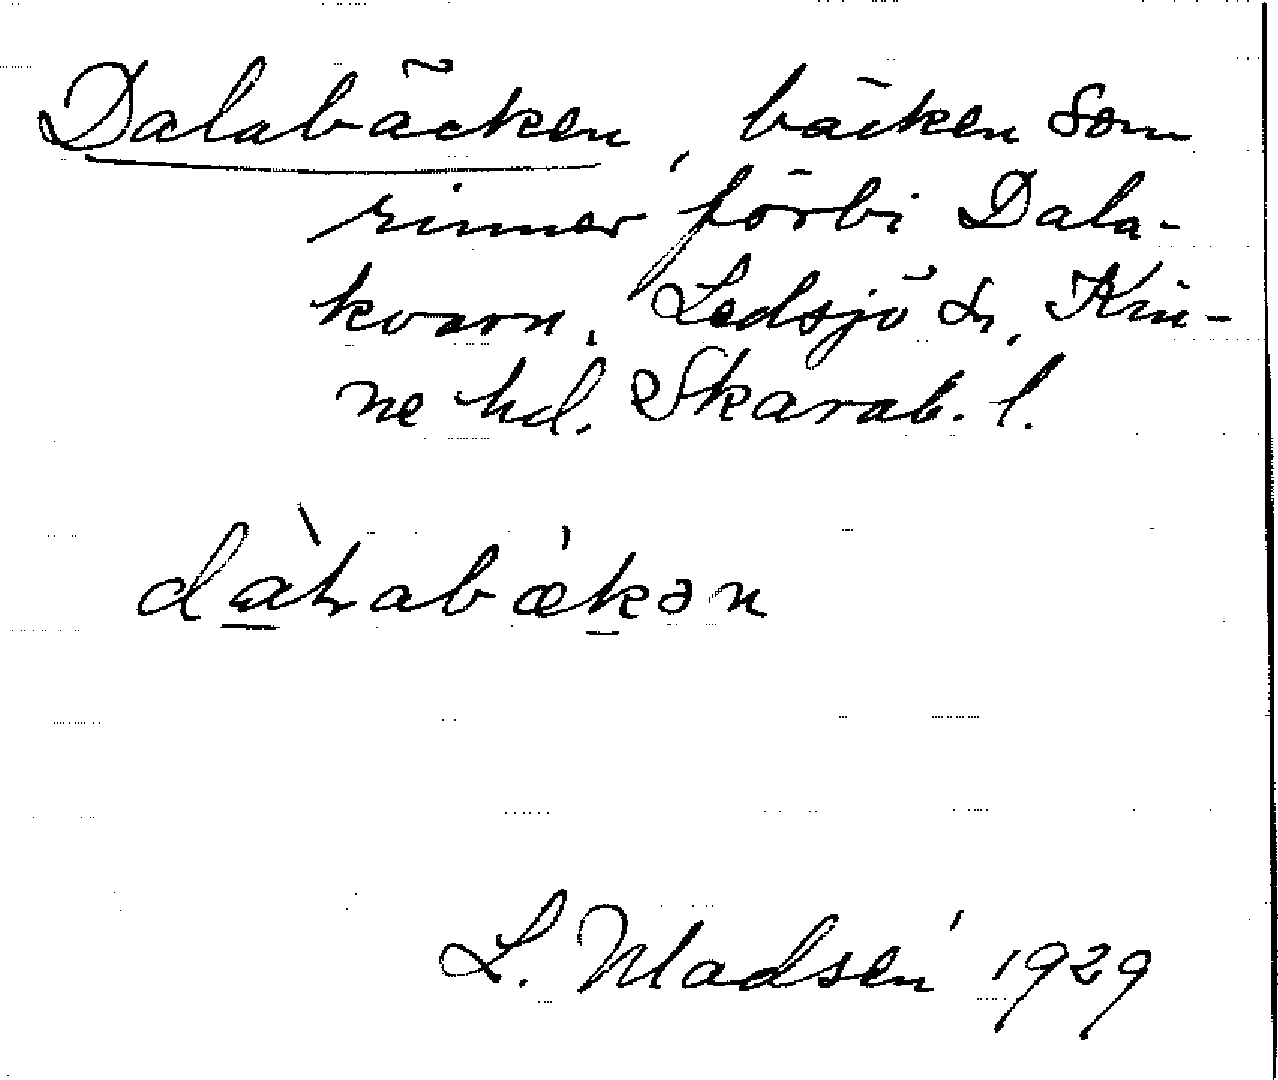 Dalabäcken, bäcken som
rinner förbi Dala-
kvarn, Ledsjö sn, Kin-
ne hd. Skarab. l.
dàɫabækən
L. Madsén 1929